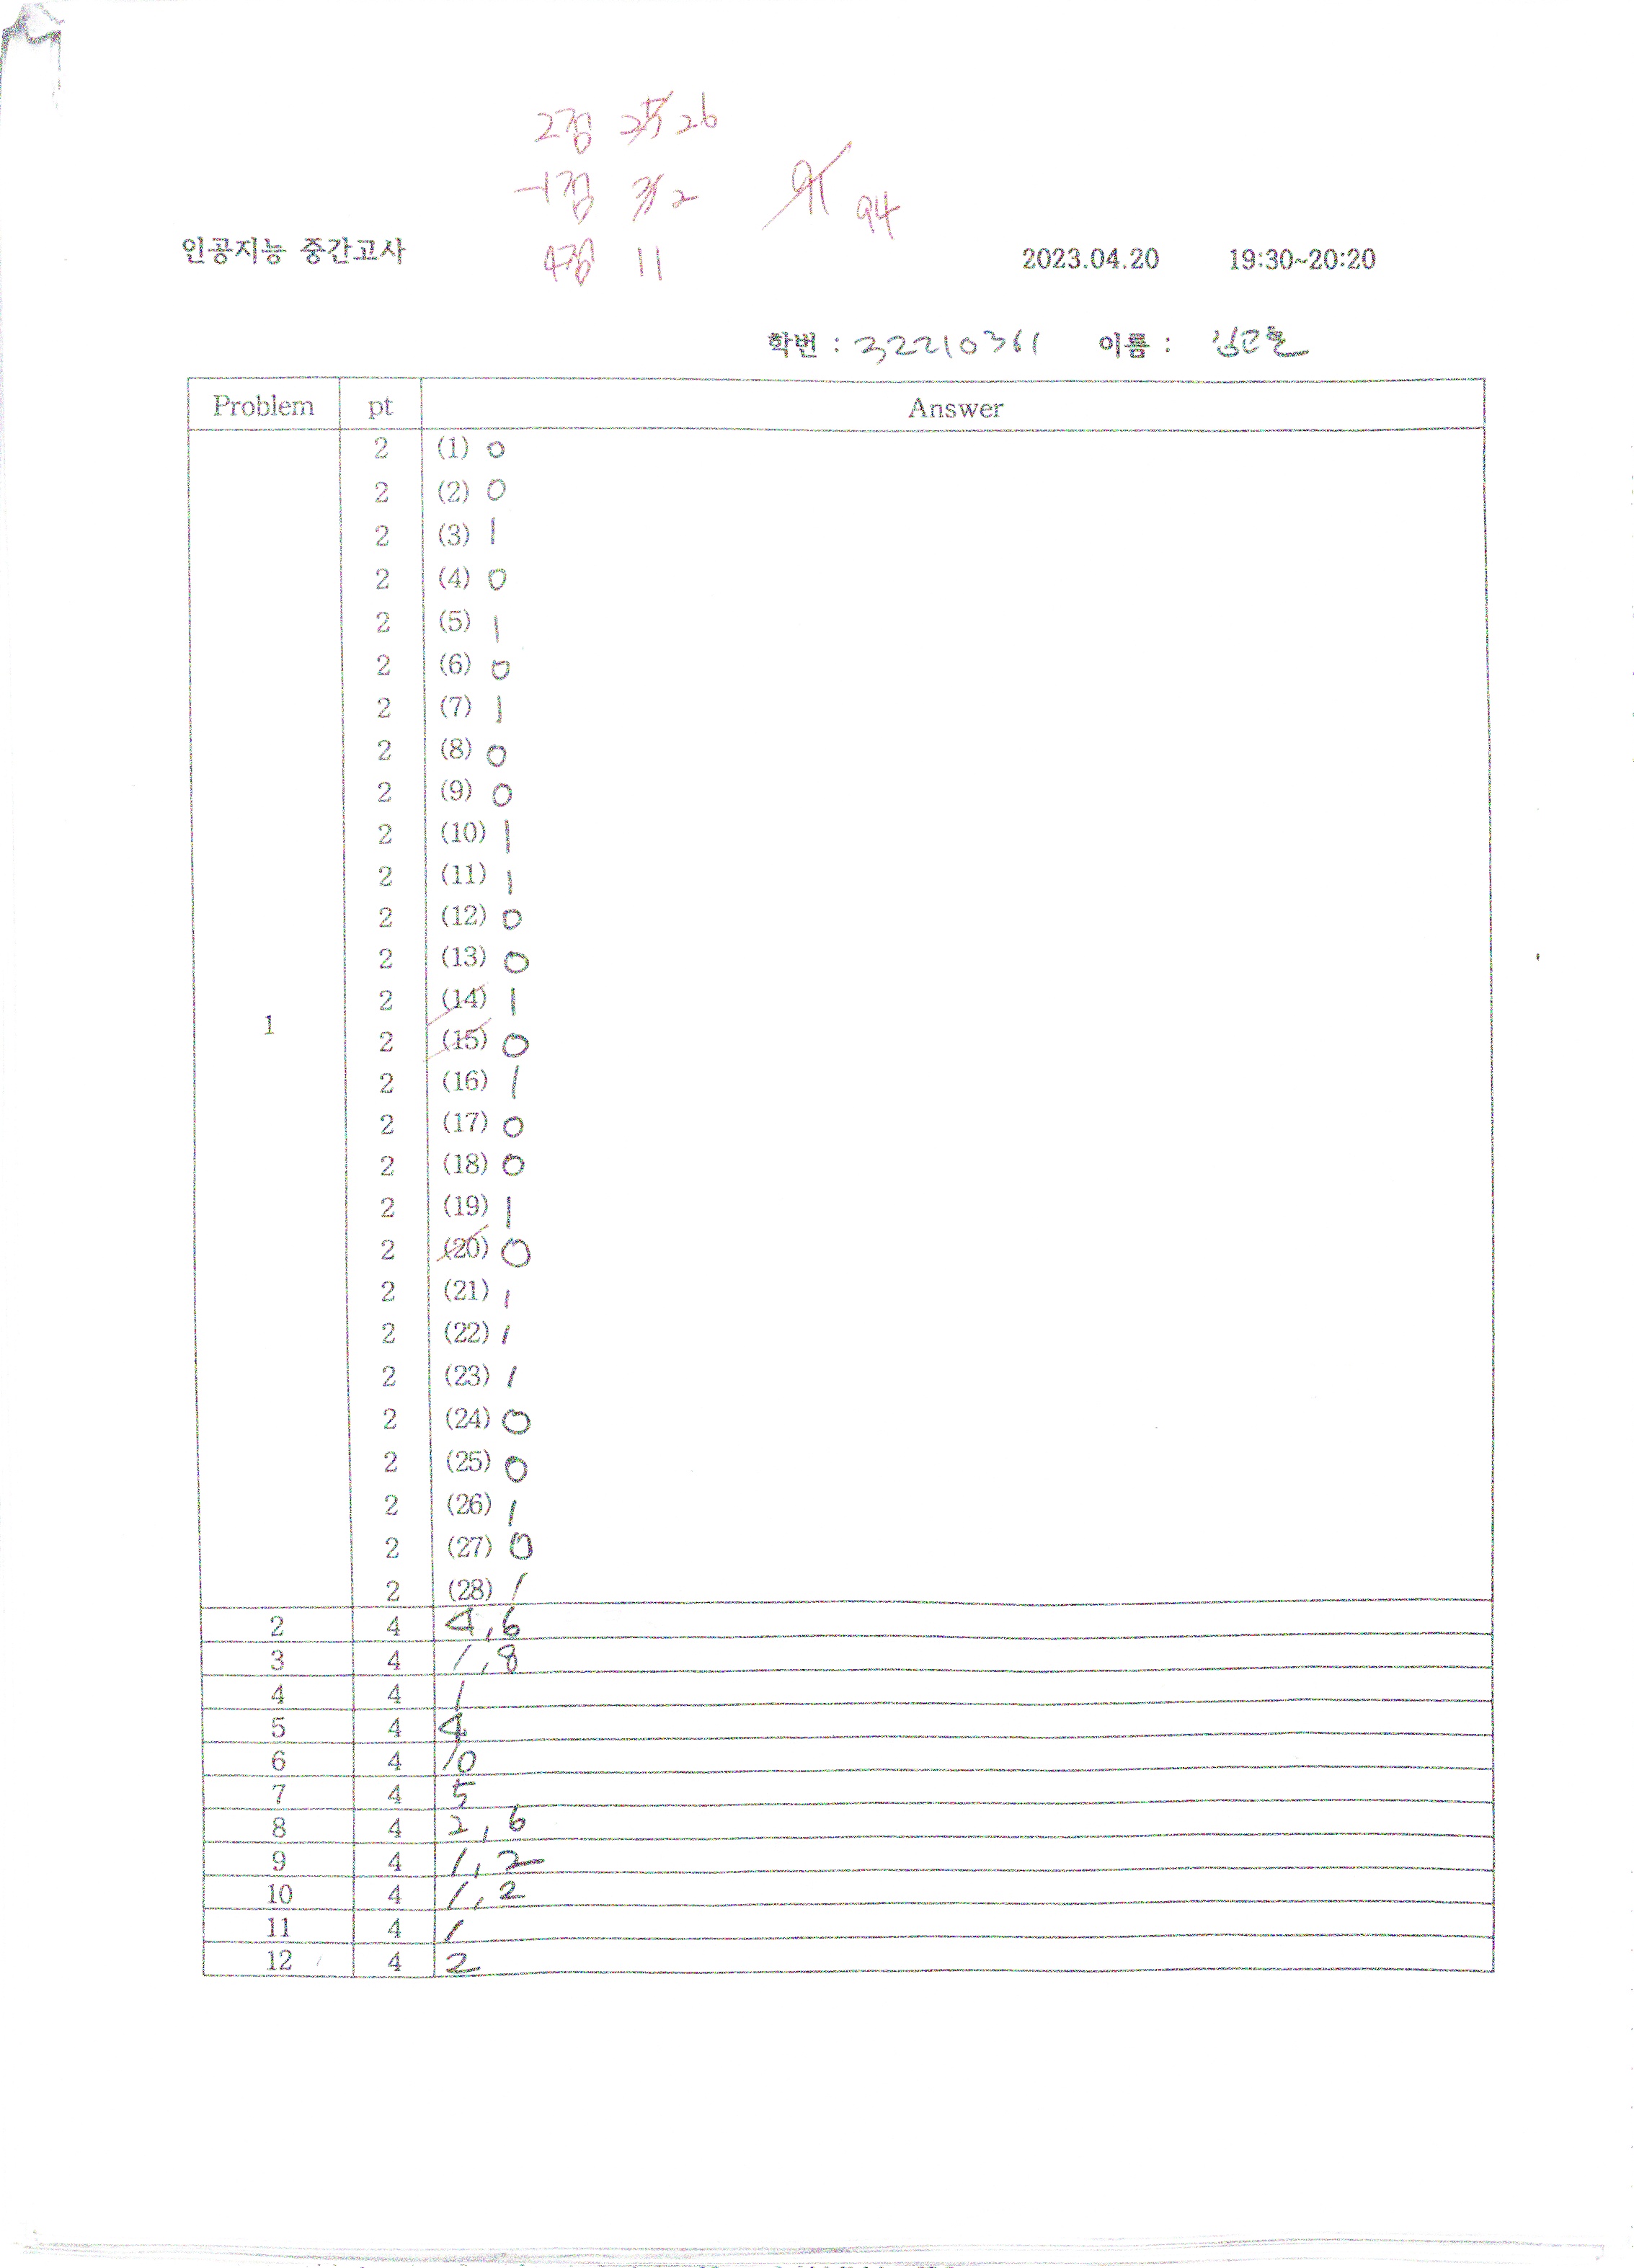 2점 25 26
-1점 3 2 91 94
인공지능 중간고사 4점 11 2023.04.20 19:30~20:20
학번 : 32210361 이름 :
Problem pt Answer
2 (1) 0
2 (2) 0
2 (3) 1
2 (4) 0
2 (5) 1
2 (6) 0
2 (7) 1
2 (8) 0
2 (9) 0
2 (10) 1
2 (11) 1
2 (12) 0
2 (13) 0
2 (14) 1
1
2 (15) 0
2 (16) 1
2 (17) 0
2 (18) 0
2 (19) 1
2 (20) 0
2 (21) 1
2 (22) 1
2 (23) 1
2 (24) 0
2 (25) 0
2 (26) 1
2 (27) 0
2 (28) 1
2 4 4,6
3 4 1,8
4 4 1
5 4 4
6 4 10
7 4 5
8 4 2,6
9 4 1,2
10 4 1,2
11 4 1
12 4 2